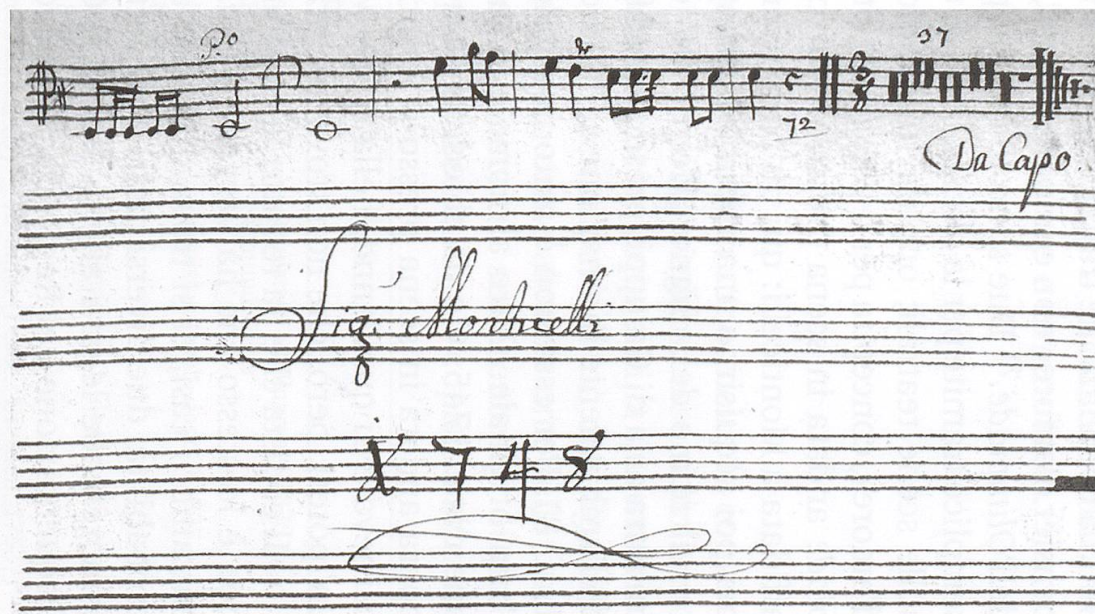 P.o
37
72
3
8
Da Capo.
Sig: Monticelli
1748